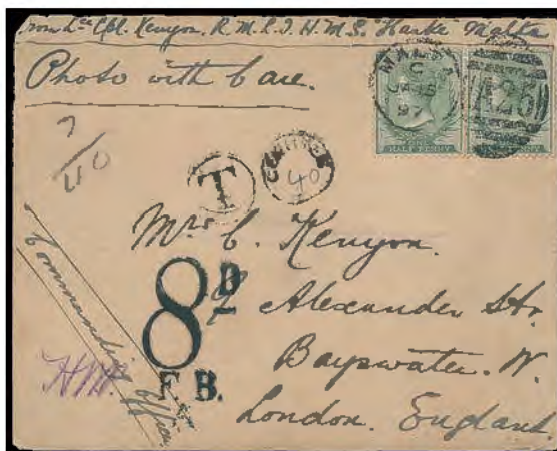 from Lce Cpl. Kenyon. R.M.L.I. H.M.S. "Hawke" Malta
Photo with Care.
MALTA
C
JA 19
97
A25
HALF PENNY
T
CENTIMES
40
40
Mrs C. Kenyon.
9 Alexander Str.
Bayswater. W.
London. England.
8D
F.B.
Commanding Officer
H.M.